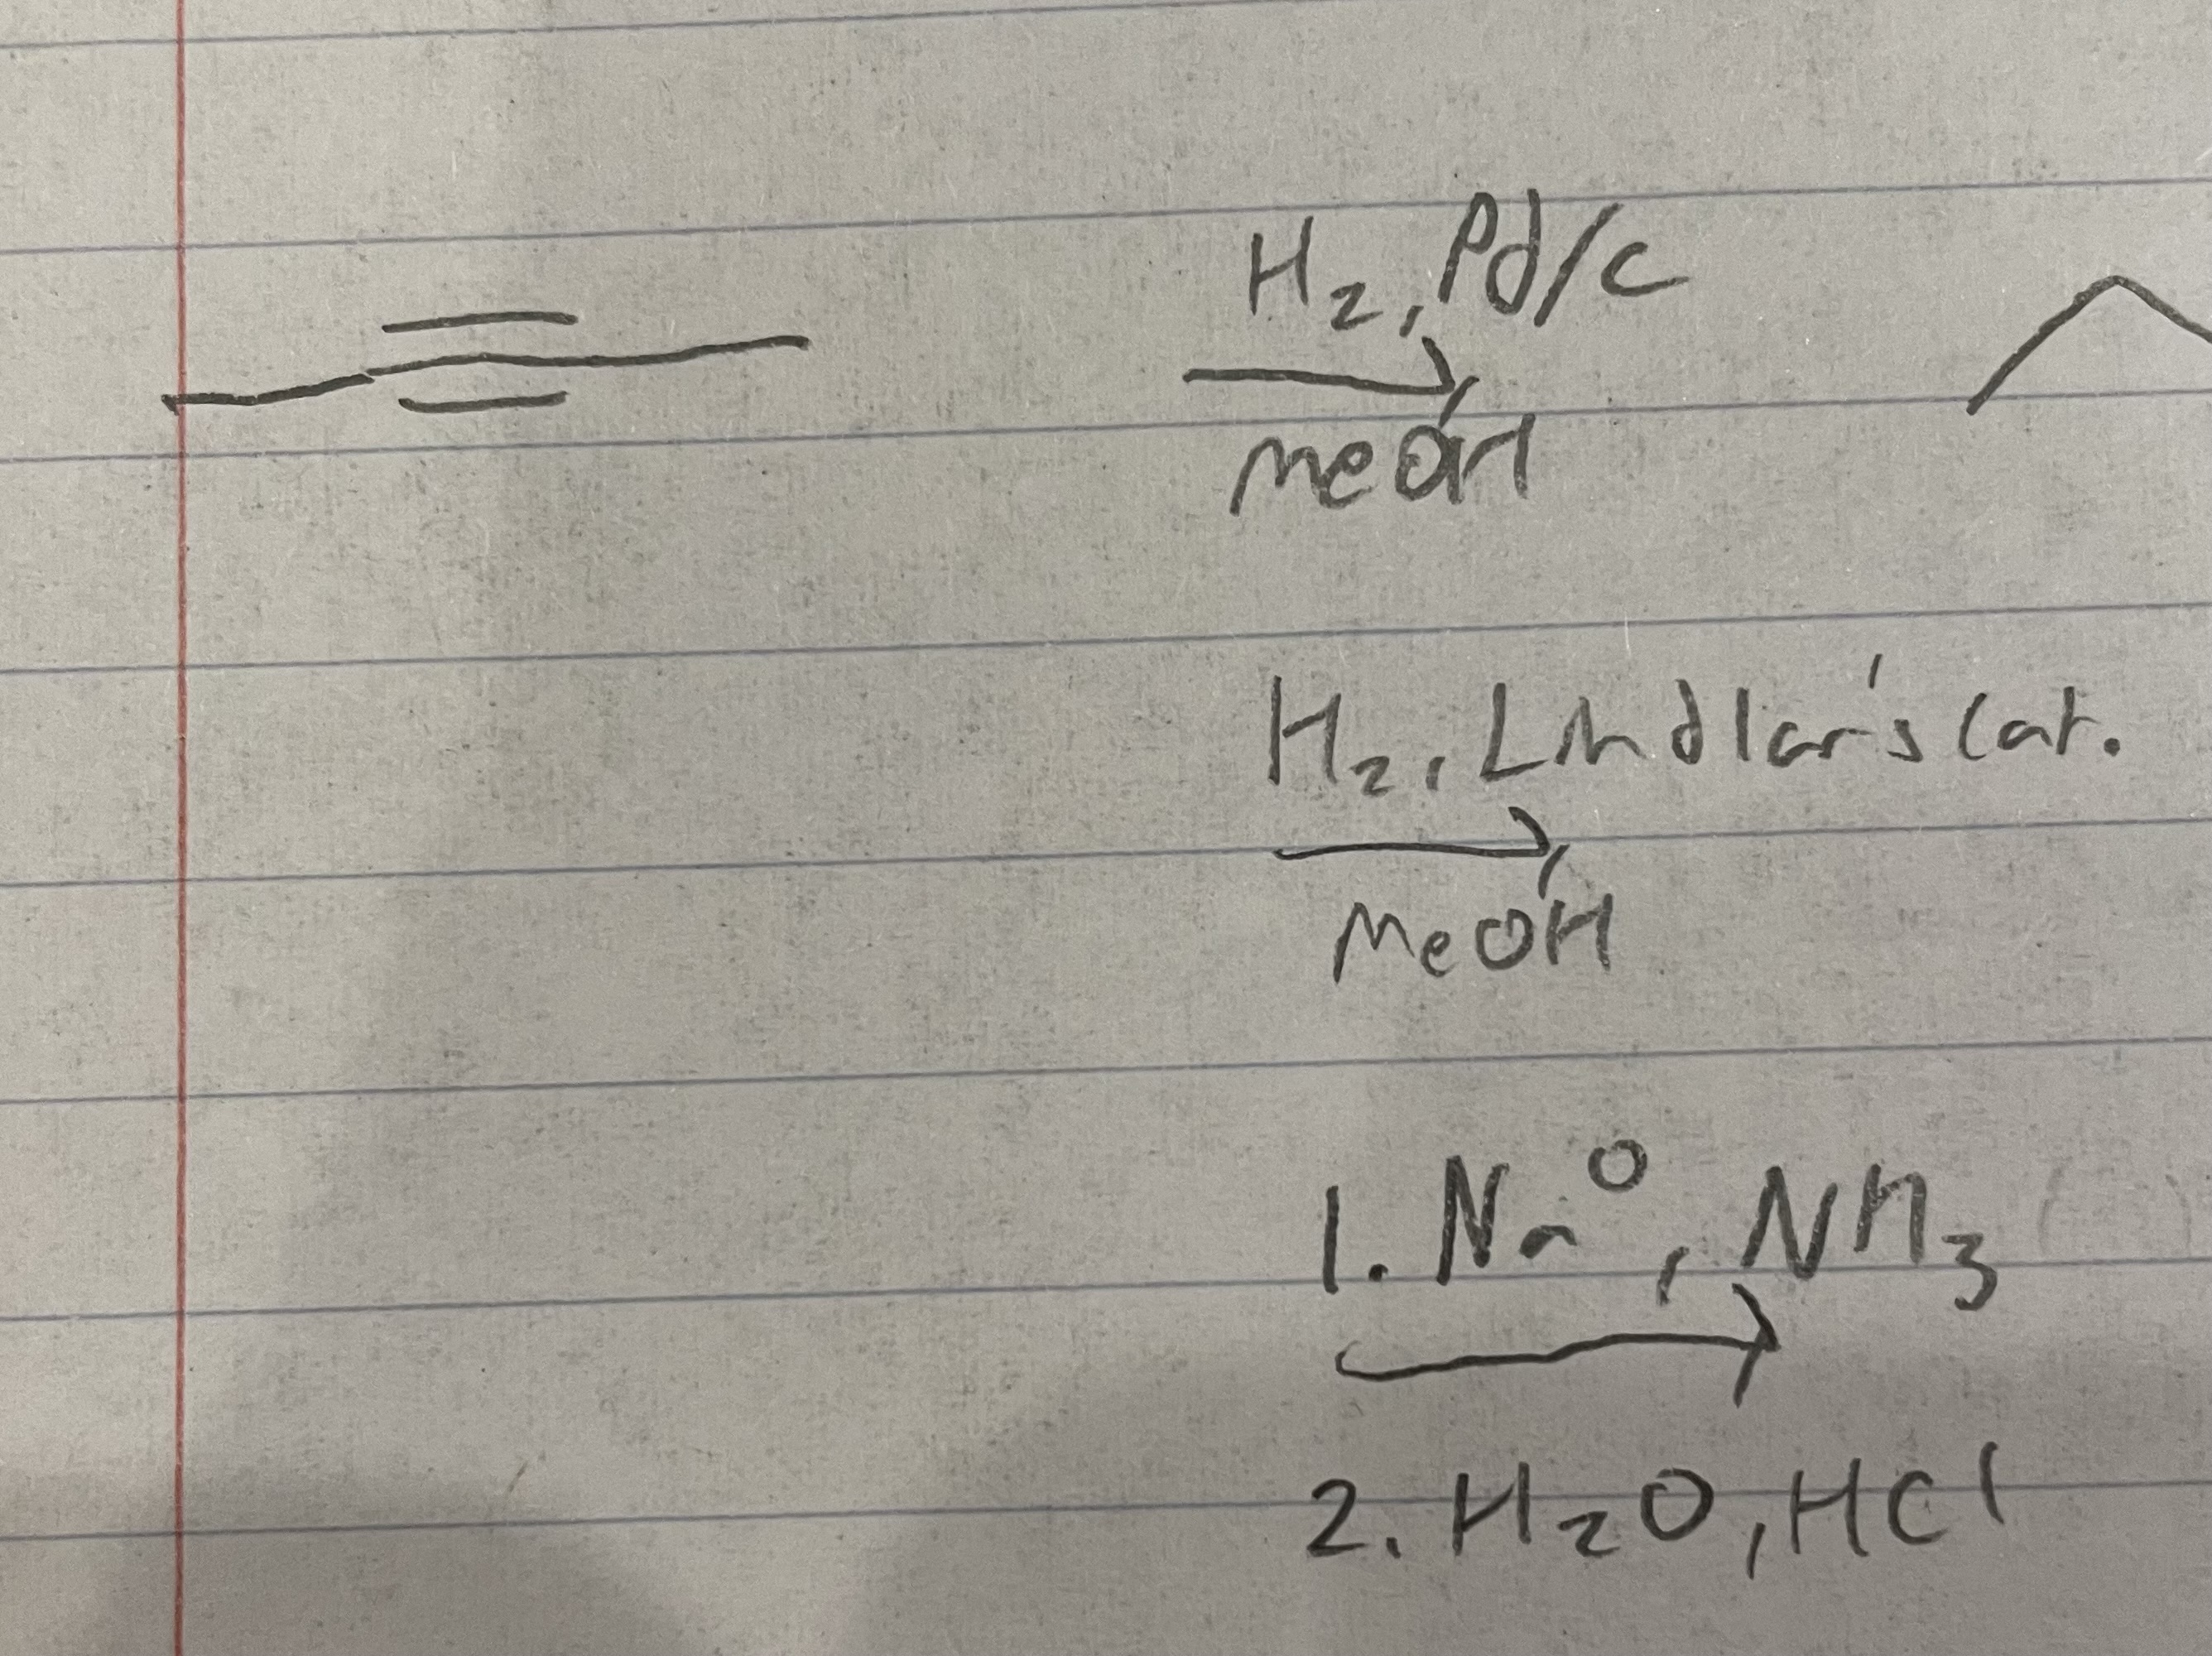 H₂, Pd/C
MeOH
H₂, Lindlar's cat.
MeOH
1. Na⁰, NH₃
2. H₂O, HCl